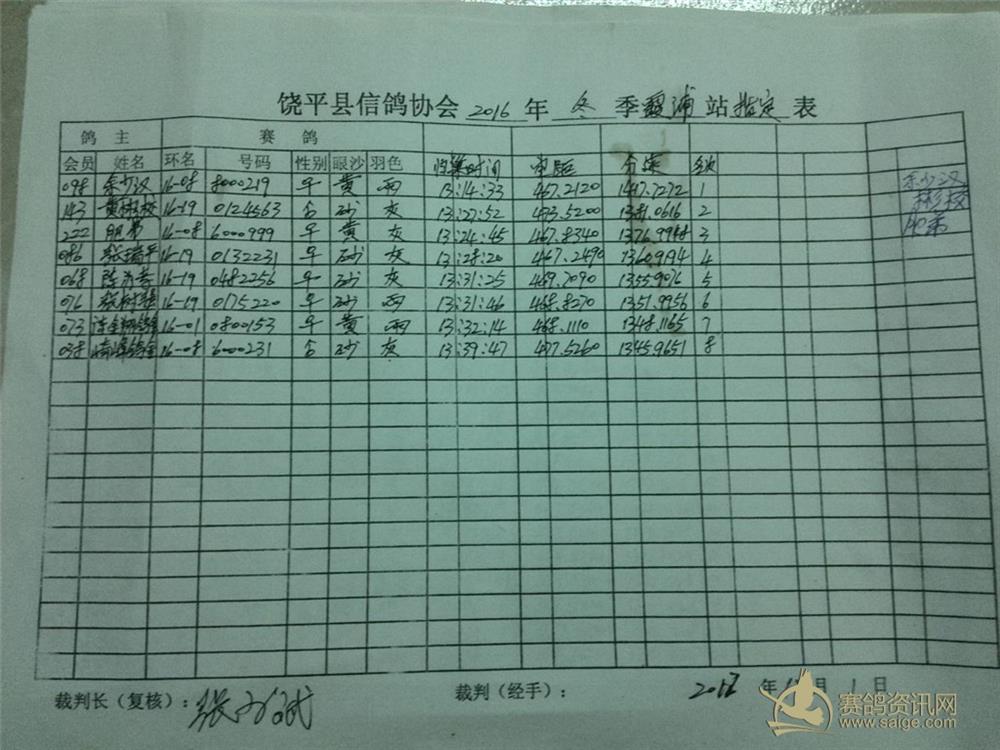 饶平县信鸽协会 2016 年 冬 季 霞浦 站 指定 表
鸽 主 赛 鸽
会员 姓名 环名 号码 性别 眼沙 羽色 归巢时间 空距 分速 名次
098 余少汉 16-08 8000219 黄 雨 13:14:33 467.2120 1417.7272 1 余少汉
143 黄彬校 16-19 0124563 砂 灰 13:27:52 473.5200 1381.0616 2 彬校
222 16-08 6000999 黄 灰 13:24:45 467.8340 3
086 张瑞平 16-19 0132231 砂 灰 13:28:20 467.2490 1360.9194 4
068 16-19 0482256 砂 灰 13:31:25 469.7090 1355.9076 5
076 16-19 0175220 砂 雨 13:31:46 468.8270 1351.9956 6
073 16-01 0800153 黄 雨 13:32:14 468.1110 1348.1165 7
038 16-08 6000231 砂 灰 13:39:47 477.5260 1345.9651 8
裁判长（复核）： 裁判（经手）： 年 月 1 日
赛鸽资讯网
www.saige.com